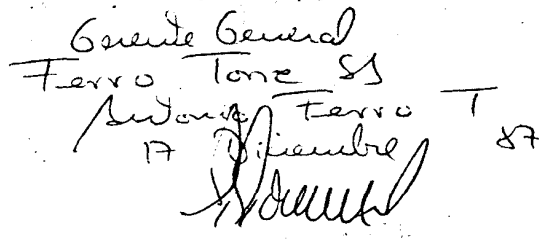 Gerente General
Ferro Torre SA
Antonio Ferro T
17 Diciembre 87